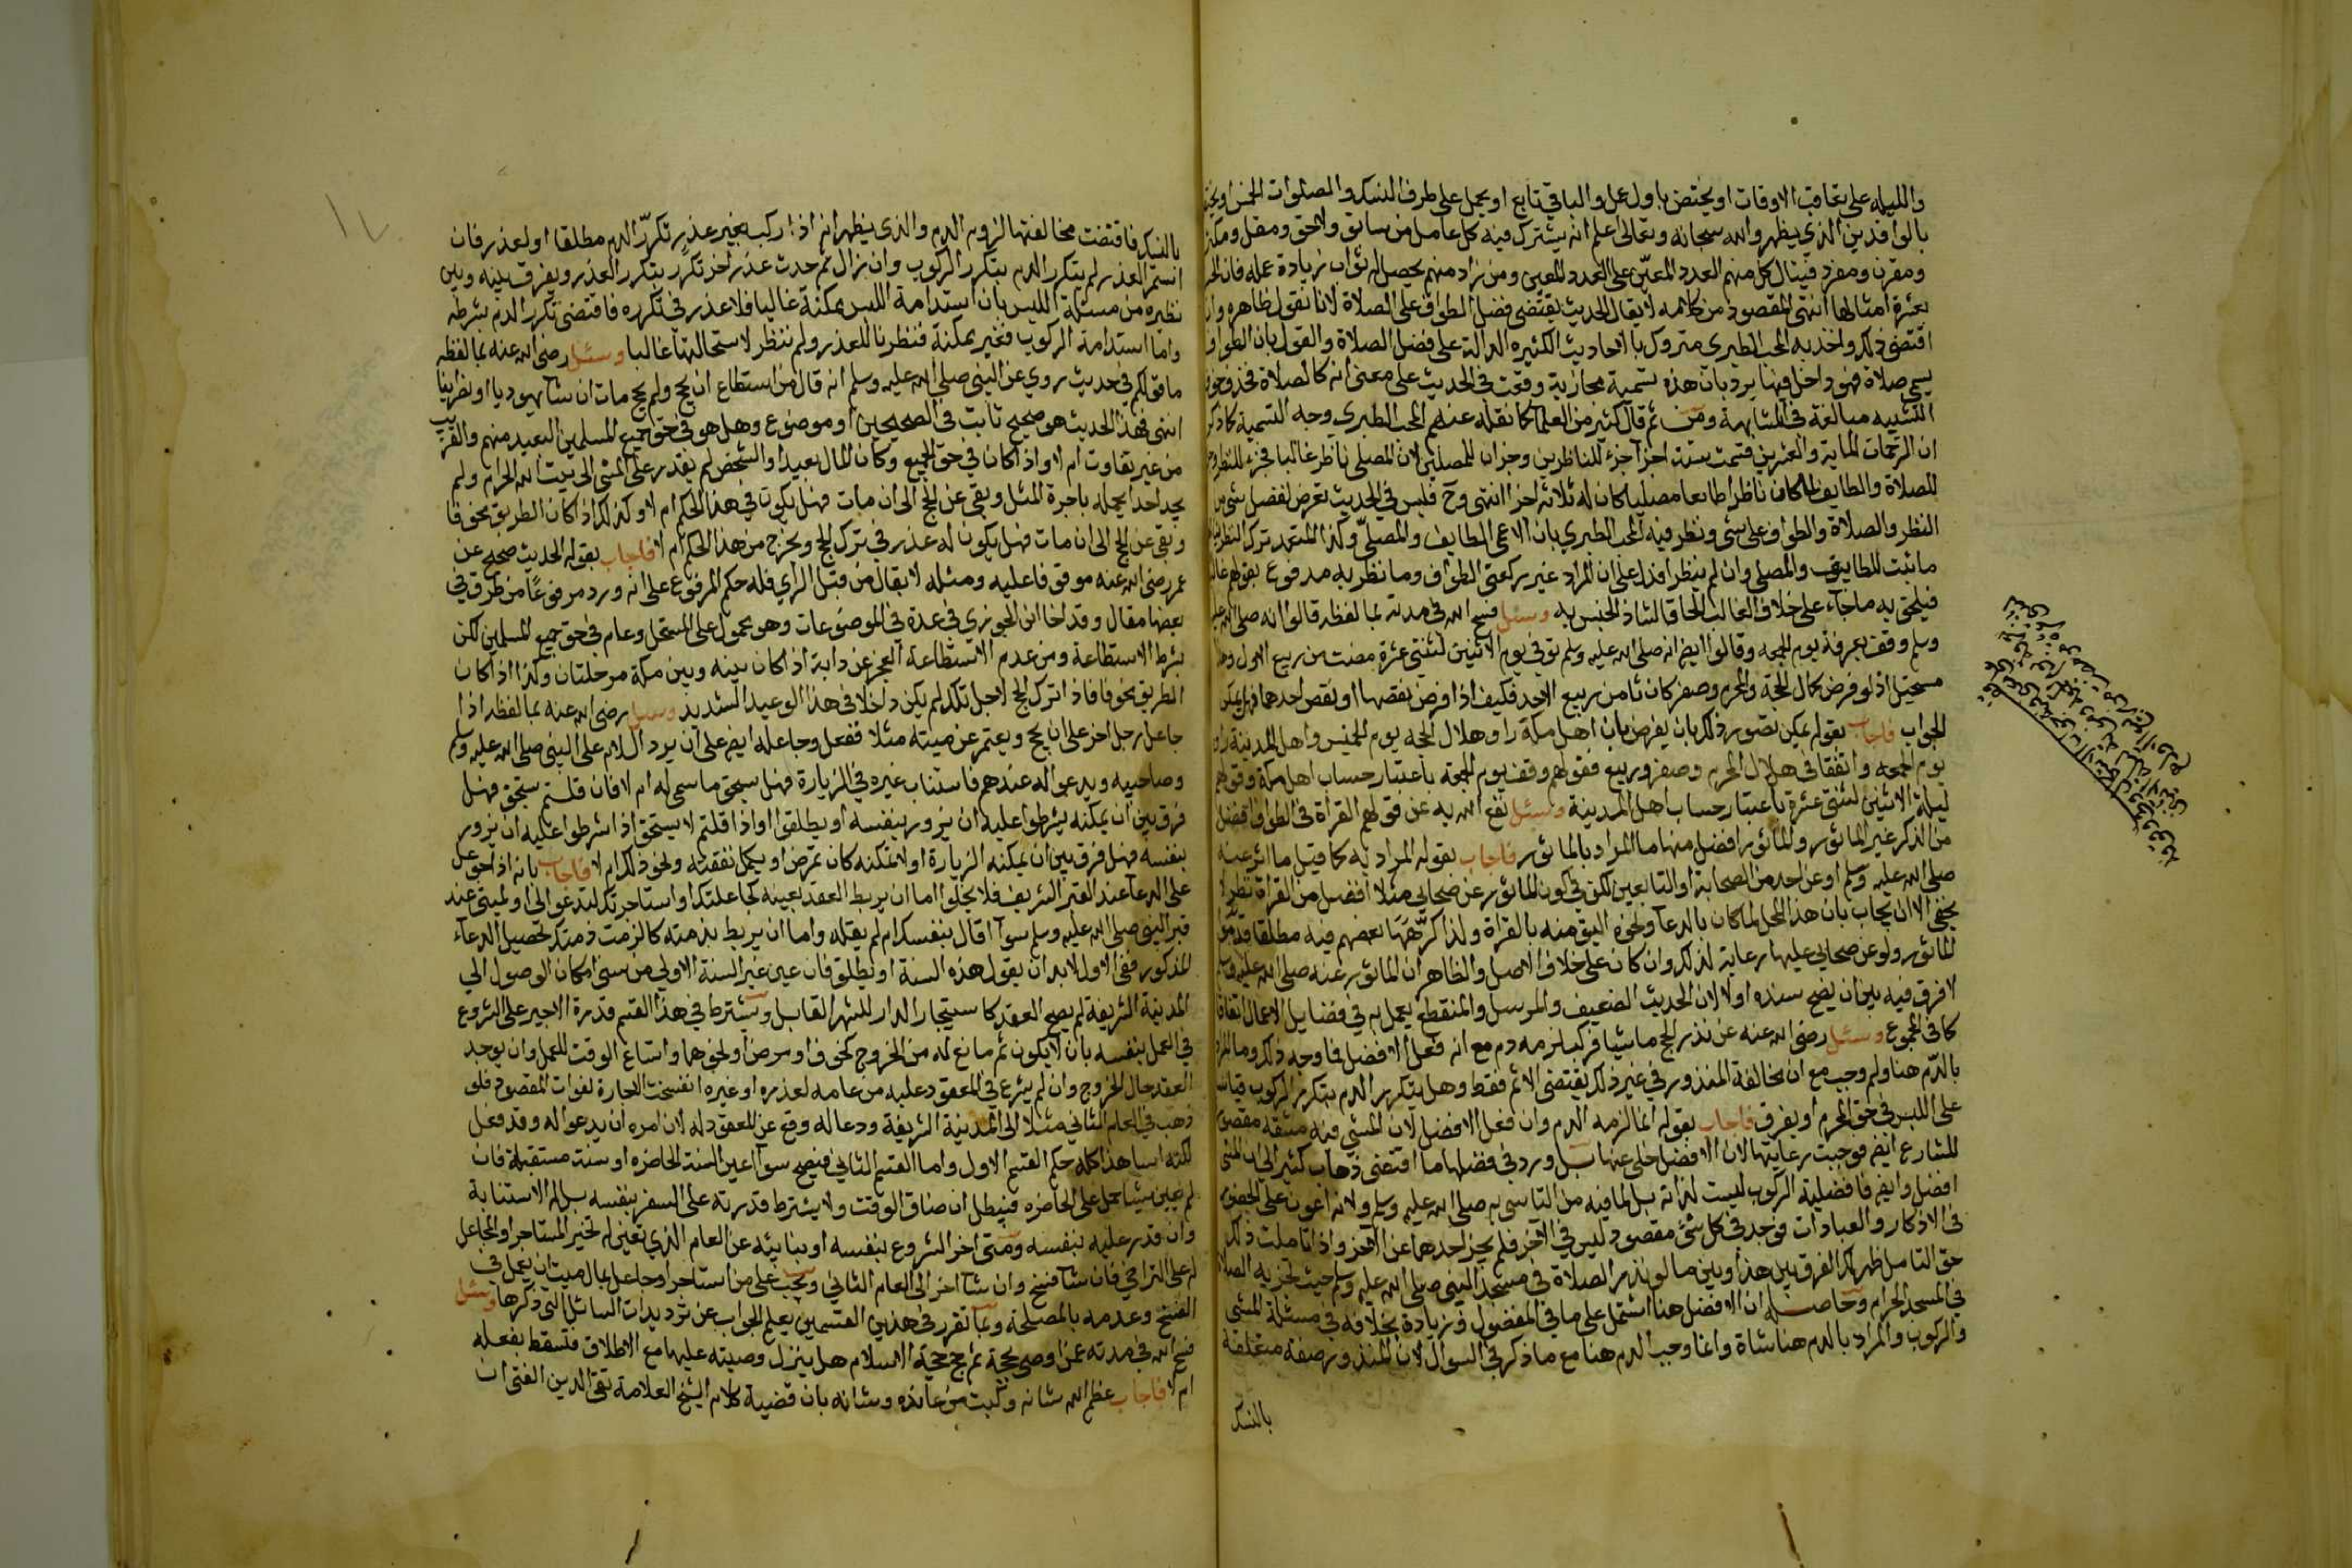 والليله على تعاقب الاوقات او يختص باول عمل والباقي تابع او يحمل على طرف النسك والصلوات الخمس
بالوافدين الذي يظهر والله سبحانه وتعالى اعلم انه يشترك فيه كل عامل من سابق ولاحق ومقل ومكثر
ومقرن ومفرد فينال كل منهم العدد المعين على العدد المعين ومن زاد منهم يحصل له ثواب زيادة عمله فان
بعشرة امثالها انتهى المقصود من كلامه لا يقال الحديث يقتضى فضل الطواف على الصلاة لانا نقول ظاهره وان
اقتضى ذلك واخذ به المحب الطبرى متروك بالاحاديث الكثيره الدالة على فضل الصلاة والقول بان الطواف
يسمى صلاة فهو داخل فيها يرد بان هذه تسمية مجازية وقعت فى الحديث على معنى انه كالصلاة فحذف حرف
التشبيه مبالغة فى المشابهة ومن ثم قال كثير من العلما كما نقله عنهم المحب الطبرى وجه التسمية كما ذكر
ان الرحمات الماية والعشرين قسمت ستة اجزا جزء للناظرين وجزان للمصلين لان المصلى ناظر غالبا فجزء للنظر
للصلاة والطايف لما كان ناظرا طايفا مصليا كان له ثلاثة اجزا انتهى وح فليس فى الحديث تعرض لفضل شى من
النظر والصلاة والطواف على شى ونظر فيه المحب الطبرى بان الاعمى الطايف والمصلى وكذا المتعمد ترك النظر
ما ثبت للطايف والمصلى وان لم ينظر افذا على ان المراد غير ركعتى الطواف وما نظر به مدفوع بقولهم
فيلحق به ماجاء على خلاف الغالب الحاقا لشاذ الجنس به وسئل فسح الله فى مدته بما لفظه قالوا انه صلى الله عليه
وسلم وقف بعرفة يوم الجمعه وقالوا ايضا انه صلى الله عليه وسلم توفى يوم الاثنين لثنتى عشرة مضت من ربيع الاول وهذا
مستحيل اذ لو فرض كمال الحجة والمحرم وصفر كان ثامن ربيع الاحد فكيف اذا فرض نقصها او نقص احدها فهل يمكن
الجواب فاجاب بقوله يمكن تصور ذلك بان يفرض بان اهل مكة راوا هلال الحجه يوم الخميس واهل المدينة
يوم الجمعه واتفقا فى هلال المحرم وصفر وربيع فقولهم وقف يوم الجمعه باعتبار حساب اهل مكة وقولهم
ليلة الاثنين لثنتى عشرة باعتبار حساب اهل المدينة وسئل نفع الله به عن قولهم القراة فى الطواف افضل
من الذكر غير الماثور والماثور افضل منها ما المراد بالماثور فاجاب بقوله المراد به كما قيل ما اثر عنه
صلى الله عليه وسلم او عن احد من الصحابة او التابعين لكن فى كون الماثور عن صحابي مثلا افضل من القراة نظر لا
يخفى الا ان يجاب بان هذا المحل لما كان بالدعا ونحوه اليق منه بالقراة ولذا كرهها بعضهم فيه مطلقا قدم
الماثور ولو عن صحابى عليها رعاية لذلك وان كان على خلاف الاصل والظاهر ان الماثور عنه صلى الله عليه وسلم
لا فرق فيه بين ان يصح سنده او لا لان الحديث الضعيف والمرسل والمنقطع يعمل به فى فضايل الاعمال اتفاقا
كما فى المجموع وسئل رضى الله عنه عن نذر الحج ماشيا فركب لزمه دم مع انه فعل الافضل فما وجه ذلك وما المراد
بالدم هنا ولم وجب مع ان مخالفة المنذور فى غير ذلك يقتضى الاثم فقط وهل يتكرر الدم بتكرر الركوب قياسا
على اللبس فى حق المحرم او يفرق فاجاب بقوله انما لزمه الدم وان فعل الافضل لان المشى فيه مشقة مقصودة
للشارع ايضا فوجبت رعايتها لان الافضل خلى عنها بل ورد فى فضلها ما اقتضى ذهاب كثير الى ان المشى
افضل وايضا فافضلية الركوب ليست لذاته بل لما فيه من التاسى به صلى الله عليه وسلم ولانه اعون على الخضوع
فى الاذكار والعبادات فوجد فى كل شئ مقصود ليس فى الاخر فلم يجز احدهما عن الاخر واذا تاملت ذلك
حق التامل ظهر لك الفرق بين هذا وبين ما لو نذر الصلاة فى مسجد النبى صلى الله عليه وسلم حيث تجزيه الصلاة
فى المسجد الحرام وحاصله ان الافضل هنا اشتمل على ما فى المفضول وزيادة بخلافه فى مسئلة المشى
والركوب والمراد بالدم هنا شاة وانما وجب الدم هنا مع ما ذكر فى السوال لان المنذور صفة متعلقة
بالنسك
بالنسك فاقتضت مخالفتها لزوم الدم والذى يظهر انه اذا ركب بغير عذر تكرر الدم مطلقا او لعذر فان
استمر العذر لم يتكرر الدم بتكرر الركوب وان زال ثم حدث عذر اخر تكرر بتكرر العذر ويفرق بينه وبين
نظيره من مسئلة اللبس بان استدامة اللبس ممكنة غالبا فلا عذر فى تكرره فاقتضى تكرر الدم بشرطه
واما استدامة الركوب فغير ممكنة فنظرنا للعذر ولم ننظر لاستحالتها غالبا وسئل رضى الله عنه بما لفظه
ما قولكم فى حديث روي عن النبى صلى الله عليه وسلم انه قال من استطاع ان يحج ولم يحج مات ان شا يهوديا او نصرانيا
انتهى فهذا الحديث هو صحيح ثابت فى الصحيحين او موضوع وهل هو فى حق جميع المسلمين البعيد منهم والقريب
من غير تفاوت ام لا واذا كان فى حق الجميع وكان المال بعيدا والشخص لم يقدر على المشى الى بيت الله الحرام ولم
يجد احدا يحمله باجرة المثل وبقى عن الحج الى ان مات فهل يكون فى هذا الحكم ام لا وكذلك اذا كان الطريق مخوفا
وبقى عن الحج الى ان مات فهل يكون له عذر فى ترك الحج ويخرج من هذا الحكم ام لا فاجاب بقوله الحديث صحيح عن
عمر رضى الله عنه موقوفا عليه ومثله لا يقال من قبل الراي فله حكم المرفوع على انه ورد مرفوعا من طرق فى
بعضها مقال وقد اخطا ابن الجوزى فى عده فى الموضوعات وهو محمول على المستحل وعام فى حق جميع المسلمين لكن
بشرط الاستطاعة ومن عدم الاستطاعة العجز عن دابة اذا كان بينه وبين مكة مرحلتان وكذا اذا كان
الطريق مخوفا فاذا ترك الحج لاجل ذلك لم يكن داخلا فى هذا الوعيد الشديد وسئل رضى الله عنه بما لفظه اذا
جاعل رجل اخر على ان يحج ويعتمر عن ميته مثلا ففعل وجاعله ايضا على ان يرد السلام على النبى صلى الله عليه وسلم
وصاحبيه ويدعو له عندهم فاستناب غيره فى الزيارة فهل يستحق ما سمى له ام لا فان قلتم يستحق فهل
فرق بين ان يمكنه يشرطوا عليه ان يزور بنفسه او يطلقوا واذا قلتم لا يستحق اذا شرطوا عليه ان يزور
بنفسه فهل فرق بين ان يمكنه الزيارة او لا تمكنه كان تمرض او يكمل نفقته ونحو ذلك ام لا فاجاب بانه اذا جوعل
على الدعا عند القبر الشريف فلا يخلوا اما ان يربط العقد بعينه كجاعلتك او استاجرتك لتدعو لى او لميتى عند
قبر النبى صلى الله عليه وسلم سوآ اقال بنفسك ام لم يقله واما ان يربط بذمته كالزمت ذمتك تحصيل الدعاء
المذكور ففى الاول لا بد ان يقول هذه السنة او يطلق فان عين غير السنة الاولي من سنى امكان الوصول الى
المدينة الشريفة لم يصح العقد كاستيجار الدار للشهر القابل ويشترط فى هذا القسم قدرة الاجير على الشروع
في العمل بنفسه بان لا يكون ثم مانع له من الخروج كخوف او مرض او نحوهما واتساع الوقت للعمل وان يوجد
العقد حال الخروج وان لم يشرع فى المعقود عليه من عامه لعذره او غيره انفسخت الاجارة لفوات المقصود فلو
ذهب فى العام الثاني مثلا الى المدينة الشريفة ودعا له وقع عن المعقود له لان امره ان يدعو له وقد فعل
لكنه اسا هذا كله حكم القسم الاول واما القسم الثاني فيصح سوآ اعين السنة الحاضره او سنة مستقبلة فان
لم يعين شيئا حمل على الحاضره فيبطل ان ضاق الوقت ولا يشترط قدرته على السفر بنفسه بل له الاستنابة
وان قدر عليه بنفسه ومتى اخر الشروع بنفسه او بنائبه عن العام الذي تعين له تخير المستاجر او المجاعل
له على التراخى فان شا فسخ وان شا اخر الى العام الثاني ويجب على من استاجر او جاعل بمال ميت ان يعمل فى
الفسخ وعدمه بالمصلحة وبما تقرر فى هذين القسمين يعلم الجواب عن ترديدات السائل التى ذكرها وسئل
فسح الله فى مدته عمن اوصى بحجة ثم حج حجة الاسلام هل ينزل وصيته عليها مع الاطلاق فتسقط بفعله
ام لا فاجاب عظم الله شانه وكبت من عانده وشانه بان قضية كلام الشيخ العلامة تقى الدين الفتى ان